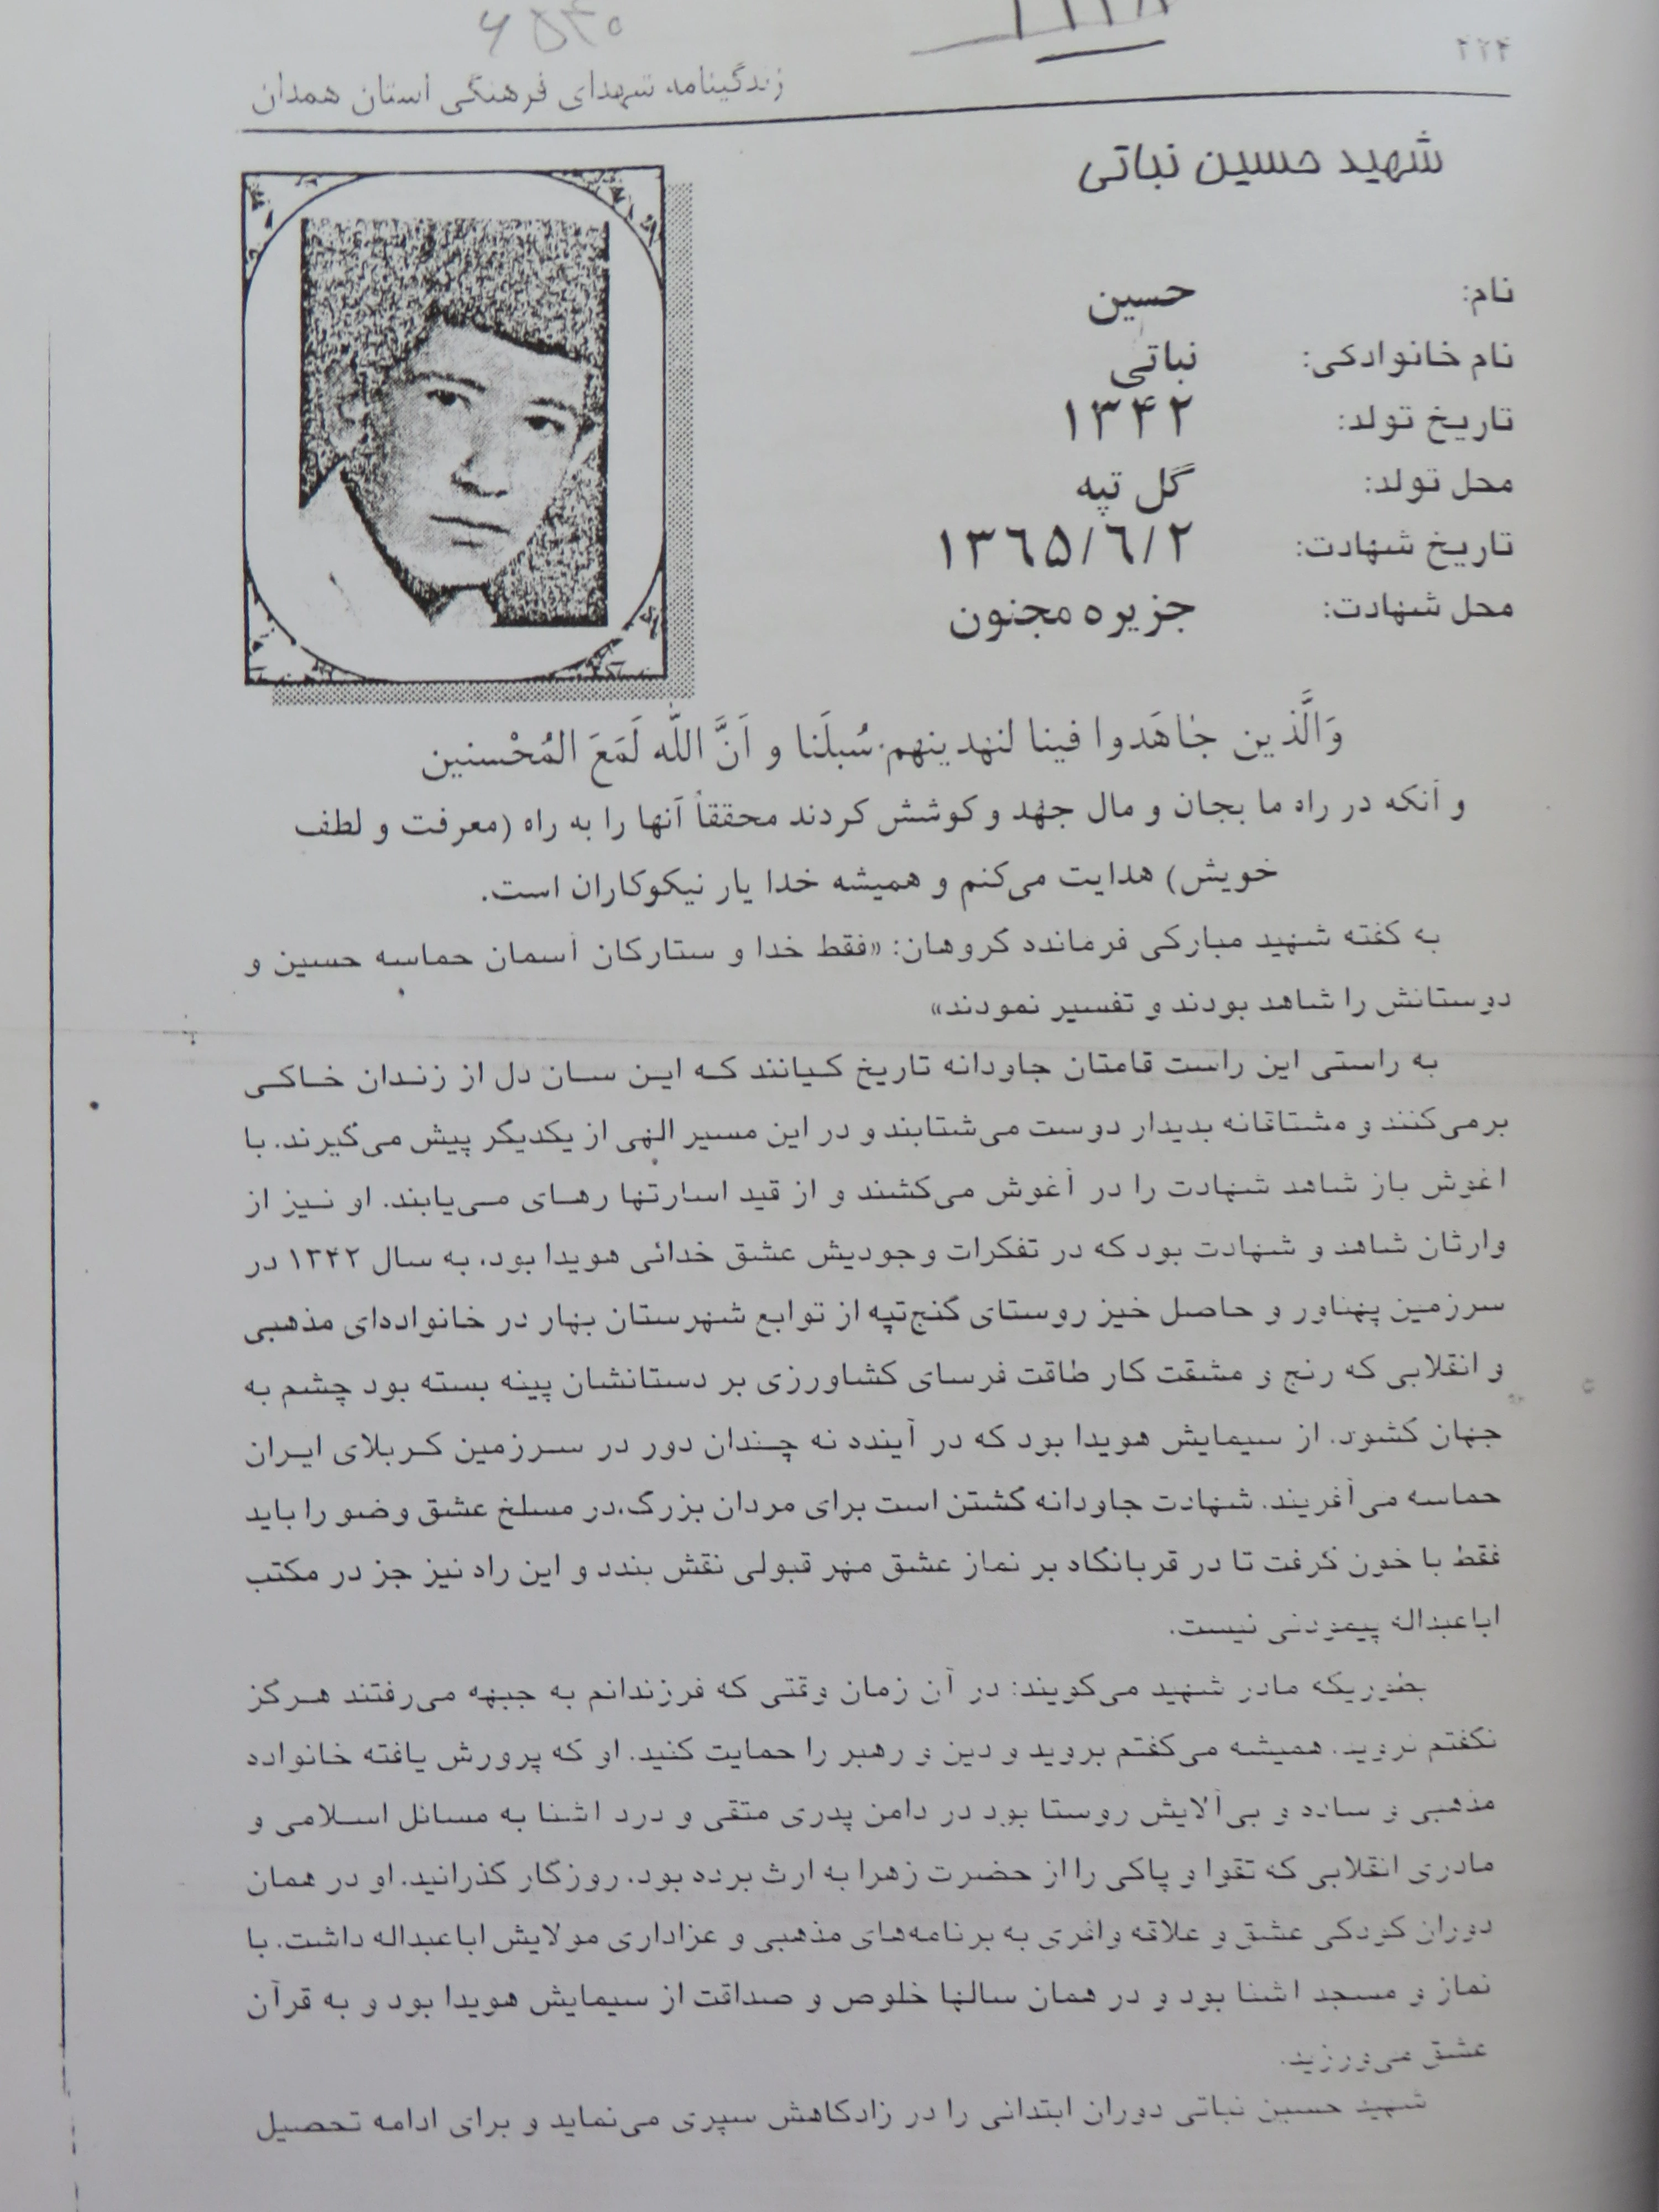 ۶۵۴۰
زندگینامه شهدای فرهنگی استان همدان
شهید حسین نباتی
نام: حسین
نام خانوادگی: نباتی
تاریخ تولد: ۱۳۴۲
محل تولد: گل تپه
تاریخ شهادت: ۱۳۶۵/۶/۲
محل شهادت: جزیره مجنون
وَالَّذین جٰاهَدوا فینا لنهدینهم سُبلَنا و اَنَّ اللّٰه لَمَعَ المُحْسنین
و آنکه در راه ما بجان و مال جهد و کوشش کردند محققاً آنها را به راه (معرفت و لطف
خویش) هدایت می‌کنم و همیشه خدا یار نیکوکاران است.
به گفته شهید مبارکی فرمانده گروهان: «فقط خدا و ستارگان آسمان حماسه حسین و
دوستانش را شاهد بودند و تفسیر نمودند»
به راستی این راست قامتان جاودانه تاریخ کیانند که این سان دل از زندان خاکی
برمی‌کنند و مشتاقانه بدیدار دوست می‌شتابند و در این مسیر الهی از یکدیگر پیش می‌گیرند. با
اغوش باز شاهد شهادت را در آغوش می‌کشند و از قید اسارتها رهای می‌یابند. او نیز از
وارثان شاهد و شهادت بود که در تفکرات وجودیش عشق خدائی هویدا بود، به سال ۱۳۴۲ در
سرزمین پهناور و حاصل خیز روستای گنج‌تپه از توابع شهرستان بهار در خانواده‌ای مذهبی
و انقلابی که رنج و مشقت کار طاقت فرسای کشاورزی بر دستانشان پینه بسته بود چشم به
جهان گشود. از سیمایش هویدا بود که در آینده نه چندان دور در سرزمین کربلای ایران
حماسه می‌آفریند. شهادت جاودانه گشتن است برای مردان بزرگ،در مسلخ عشق وضو را باید
فقط با خون گرفت تا در قربانگاه بر نماز عشق مهر قبولی نقش بندد و این راه نیز جز در مکتب
اباعبداله پیمودنی نیست.
بطوریکه مادر شهید می‌گویند: در آن زمان وقتی که فرزندانم به جبهه می‌رفتند هرگز
نگفتم نروید. همیشه می‌گفتم بروید و دین و رهبر را حمایت کنید. او که پرورش یافته خانواده
مذهبی و ساده و بی‌آلایش روستا بود در دامن پدری متقی و درد اشنا به مسائل اسلامی و
مادری انقلابی که تقوا و پاکی را از حضرت زهرا به ارث برده بود، روزگار گذرانید. او در همان
دوران کودکی عشق و علاقه وافری به برنامه‌های مذهبی و عزاداری مولایش اباعبداله داشت. با
نماز و مسجد اشنا بود و در همان سالها خلوص و صداقت از سیمایش هویدا بود و به قرآن
عشق می‌ورزید.
شهید حسین نباتی دوران ابتدائی را در زادگاهش سپری می‌نماید و برای ادامه تحصیل